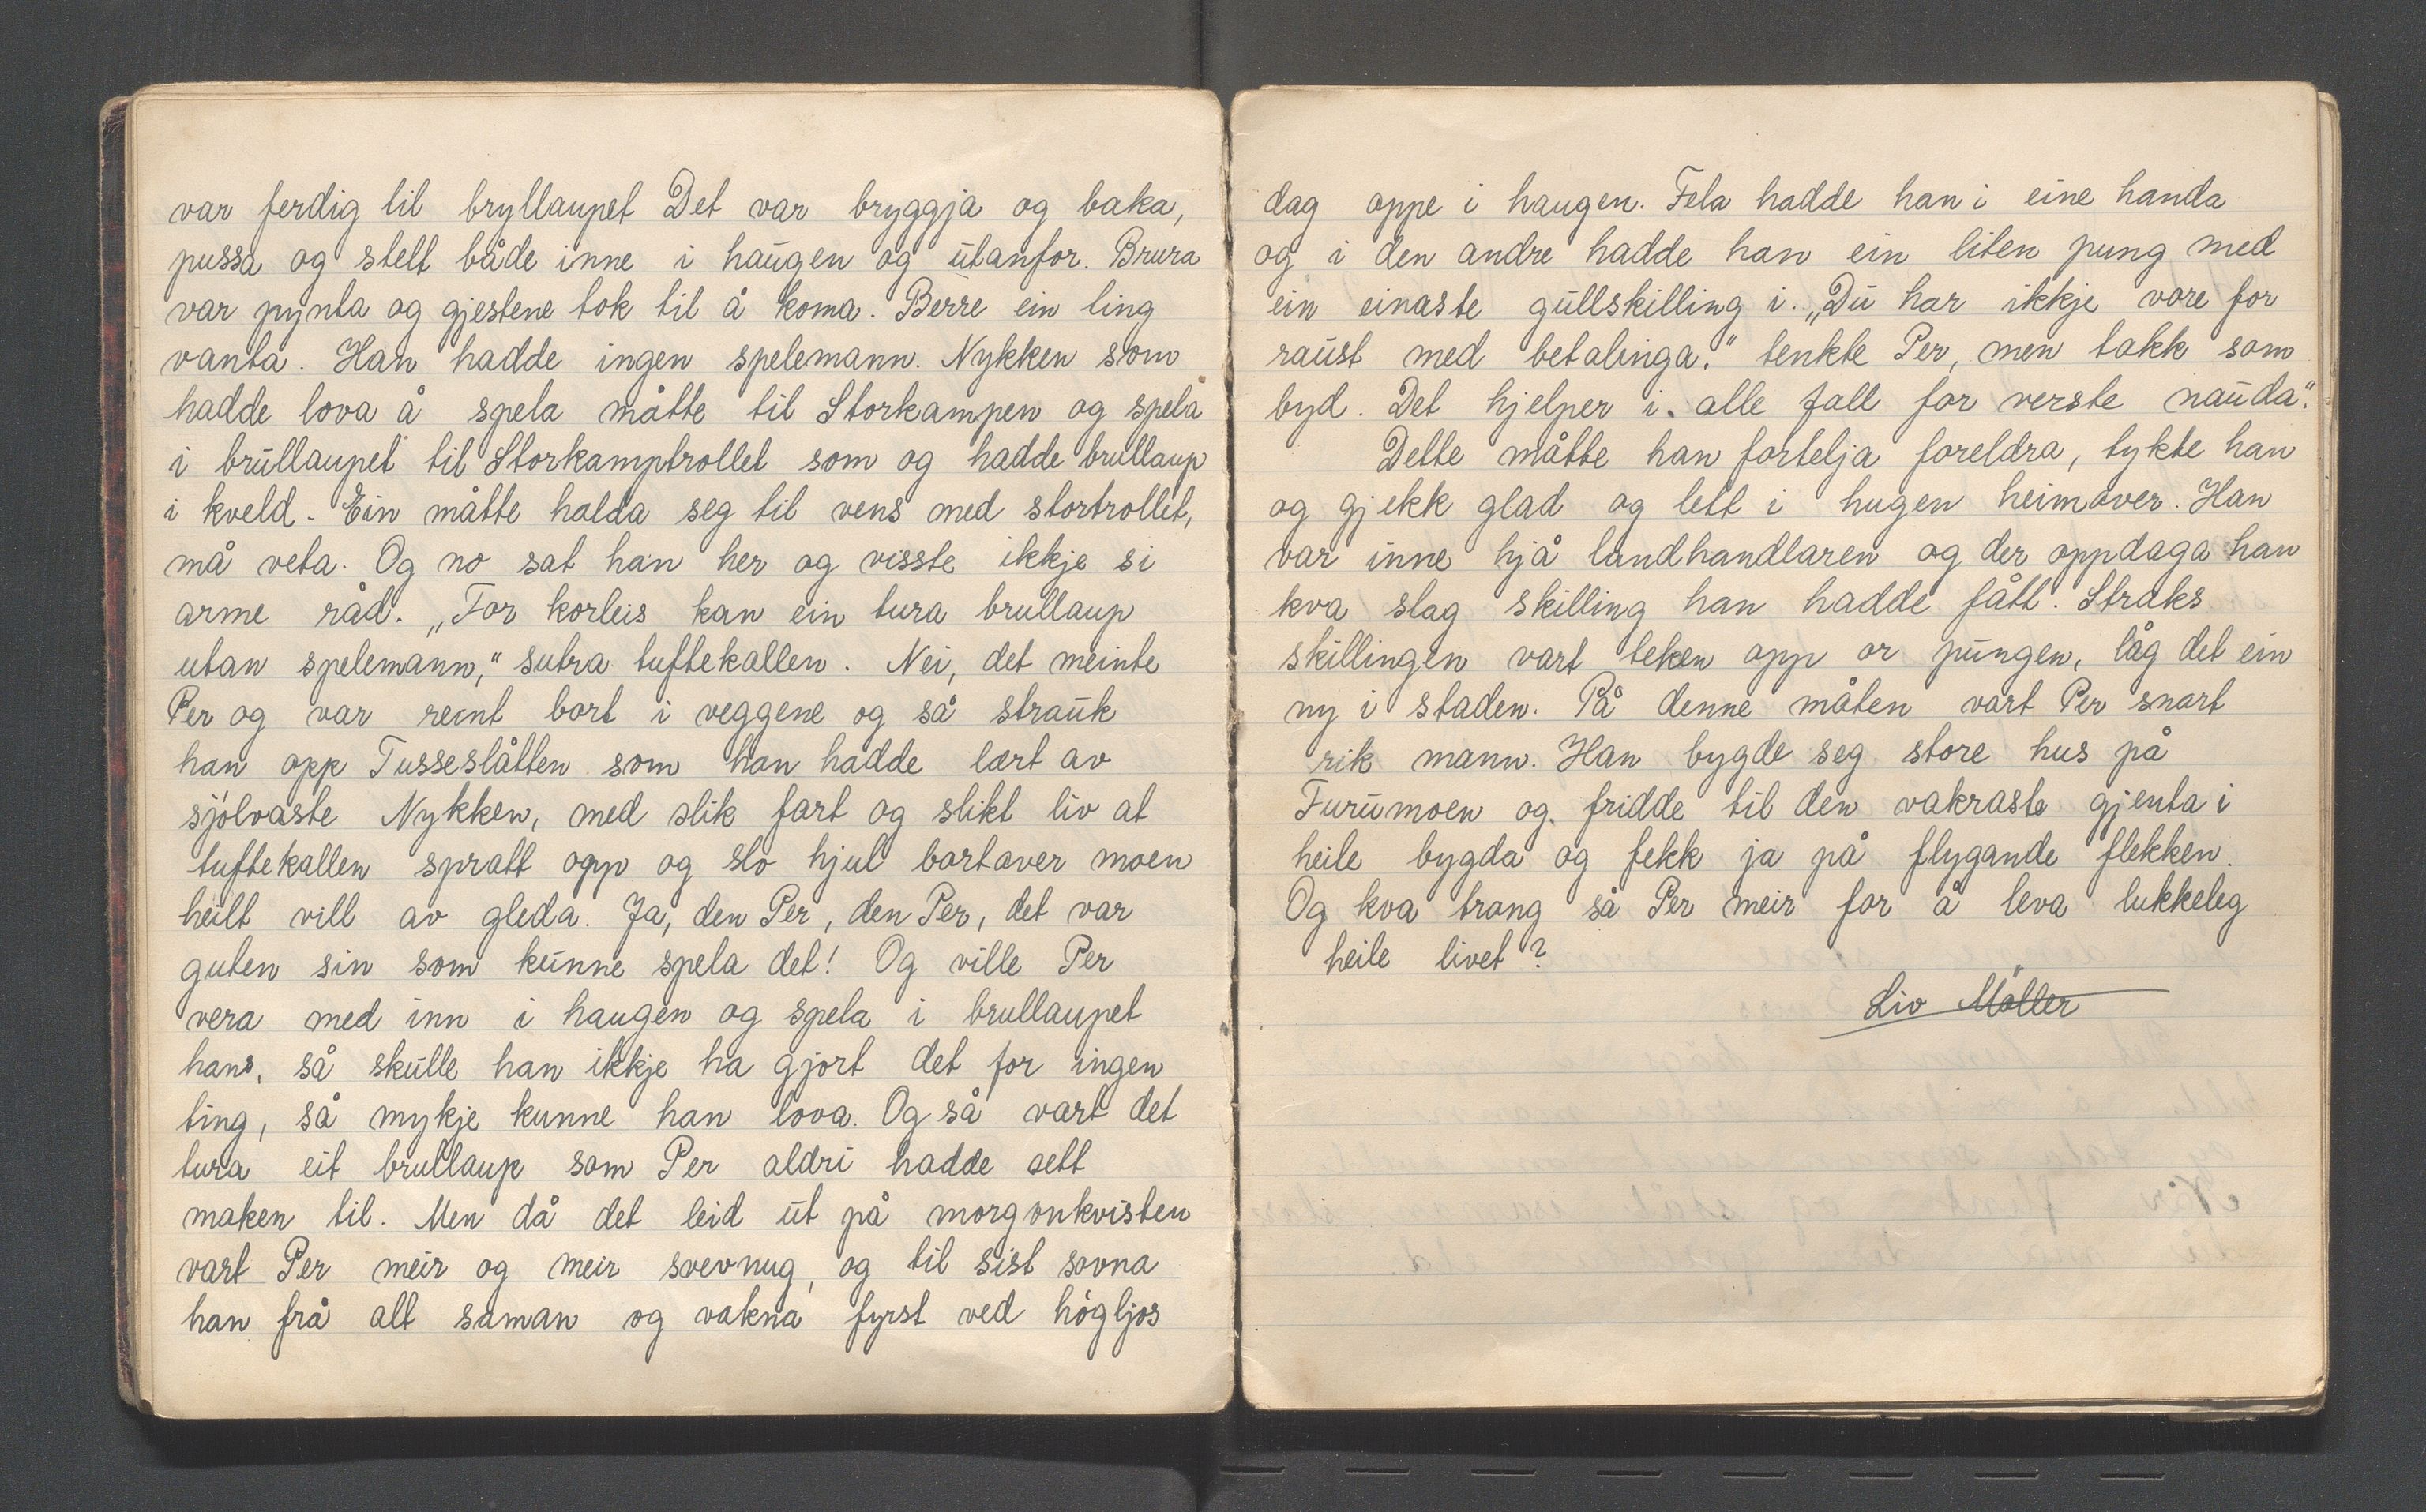 var ferdig til bryllaupet Det var bryggja og baka,
pussa og stelt både inne i haugen og utanfor. Brura
var pynta og gjestene tok til å koma. Berre ein ting
vanta. Han hadde ingen spelemann. Nykken som
hadde lova å spela måtte til Storkampen og spela
i brullaupet til Storkamptrollet som og hadde brullaup
i kveld. Ein måtte halda seg til vens med stortrollet,
må veta. Og no sat han her og visste ikkje si
arme råd. „For korleis kan ein tura brullaup
utan spelemann,“ sutra tuftekallen. Nei, det meinte
Per og var reint bort i veggene og så strauk
han opp Tusseslåtten som han hadde lært av
sjølvaste Nykken, med slik fart og slikt liv at
tuftekallen spratt opp og slo hjul bortover moen
heilt vill av gleda. Ja, den Per, den Per, det var
guten sin som kunne spela det! Og ville Per
vera med inn i haugen og spela i brullaupet
hans, så skulle han ikkje ha gjort det for ingen
ting, så mykje kunne han lova. Og så vart det
tura eit brullaup som Per aldri hadde sett
maken til. Men då det leid ut på morgonkvisten
vart Per meir og meir svevnug, og til sist sovna
han frå alt saman og vakna fyrst ved högljos
dag oppe i haugen. Fela hadde han i eine handa
og i den andre hadde han ein liten pung med
ein einaste gullskilling i. „Du har ikkje vore for
raust med betalinga.“ tenkte Per, men takk som
byd. Det hjelper i alle fall for verste nauda“.
Dette måtte han fortelja foreldra, tykte han
og gjekk glad og lett i hugen heimover. Han
var inne hjå landhandlaren og der oppdaga han
kva slag skilling han hadde fått. Straks
skillingen vart teken opp or pungen, låg det ein
ny i staden. På denne måten vart Per snart
rik mann. Han bygde seg store hus på
Furumoen og fridde til den vakraste gjenta i
heile bygda og fekk ja på flygande flekken.
Og kva trong så Per meir for å leva lukkeleg
heile livet?
Liv Möller